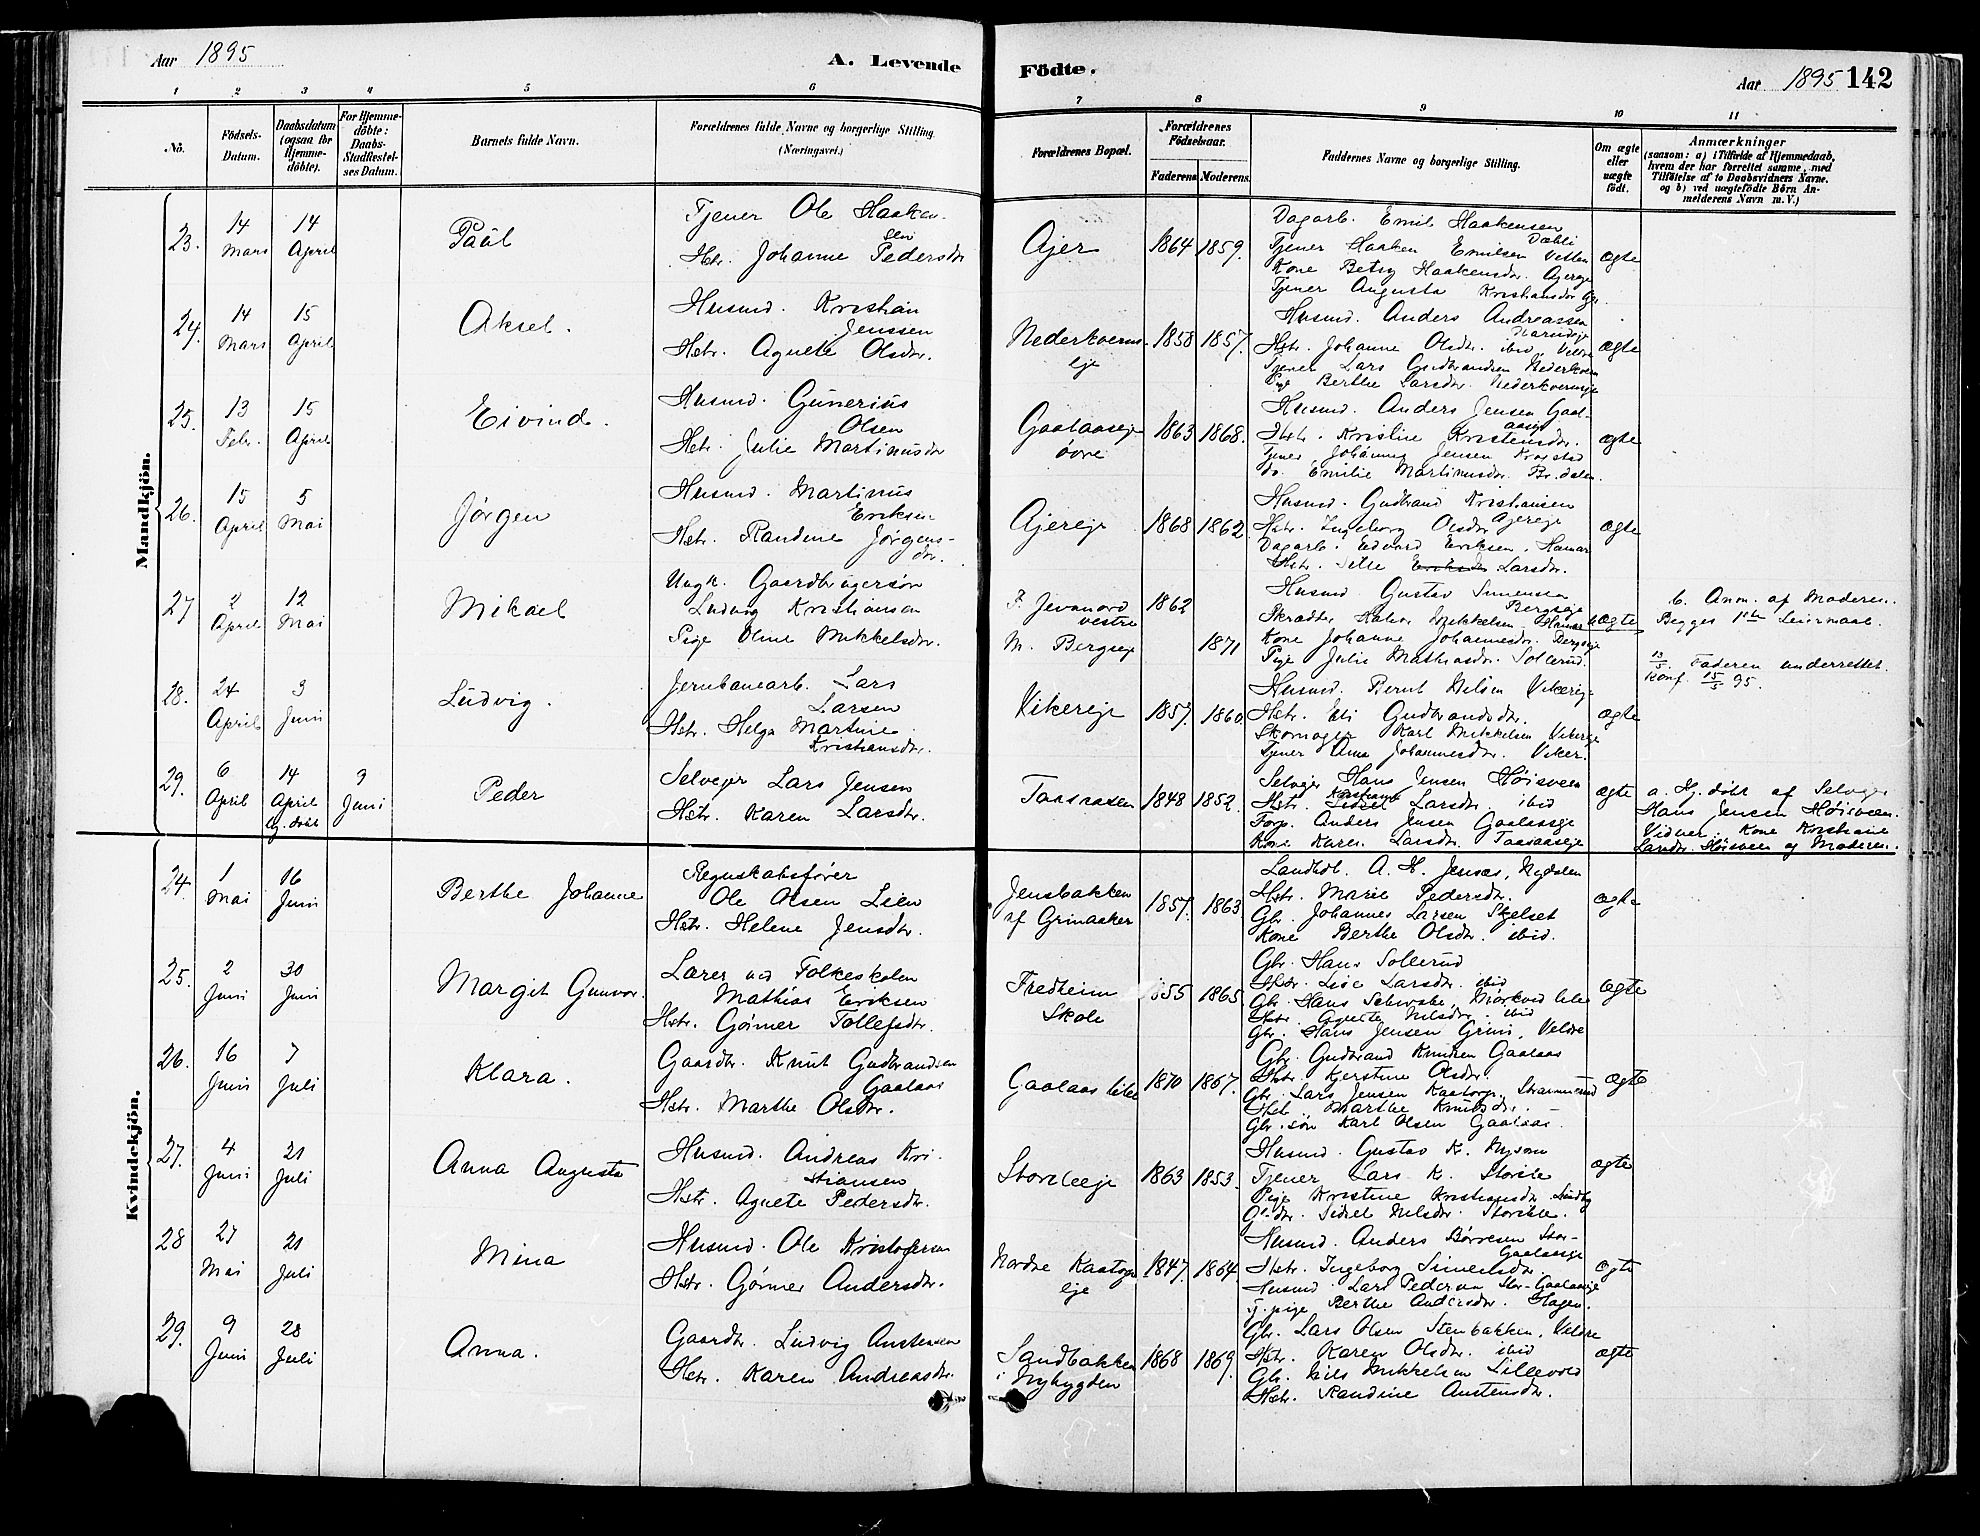 Aar 1895 A. Levende
1 2 3 4 5 6
No. Födsels-Datum. Daabsdatum (ogsaa for Hjemme-döbte). For Hjemme-döbte: Daabs-Stadfæstel-ses Datum. Barnets fulde Navn. Forældrenes fulde Navne og borgerlige Stilling. (Næringsvei.)
Mandkjön.
23. 14 Mars 14 April Paul Tjener Ole Haaken-
sen
Hstr. Johanne Pedersdr
24. 14 Mars 15 April Aksel. Husmd. Kristian
Jenssen
Hstr. Agnete Olsdr.
25. 13 Febr. 15 April Eivind. Husmd. Gunerius
Olsen
Hstr. Julie Martinusdr
26. 15 April 5 Mai Jørgen Husmd. Martinus
Eriksen
Hstr. Randine Jørgens-
dr.
27 2 April 12 Mai Mikael Ungk. Gaardbrugersøn
Ludvig Kristiansen
Pige Oline Mikkelsdr.
28. 24 April 3 Juni Ludvig. Jernbanearb. Lars
Larsen
Hstr. Helga Martine
Kristiansdr.
29. 6 April 14 April hj. døbt 3 Juni Peder Selveier Lars Jensen
Hstr. Karen Larsdr.
Kvindekjön.
24. 1 Mai 16 Juni Berthe Johanne Regnskabsfører
Ole Olsen Lien
Hstr. Helene Jensdr.
25. 2 Juni 30 Juni Margit Gunvor. Lærer ved Folkeskolen
Mathias Eriksen
Hstr. Gørner Tollefsdr.
26. 16 Juni 7 Juli Klara. Gaardbr. Knut Gudbrandsen
Gaalaas
Hstr. Marthe Olsdr.
27. 4 Juni 21 Juli Anna Augusta Husmd. Andreas Kri-
stiansen
Hstr. Agnete Pedersdr.
28 27 Mai 21 Juli Mina Husmd. Ole Kristofersen
Hstr. Gørner Andersdr.
29. 9 Juni 28 Juli Anna. Gaardbr. Ludvig Austensen
Hstr. Karen Andreasdr.
Födte. Aar 1895 142
7 8 9 10 11
Forældrenes Bopæl. Forældrenes Födselsaar. Faderens Moderens. Faddernes Navne og borgerlige Stilling. Om ægte eller uægte födt. Anmærkninger
(saasom: a) i Tilfælde af Hjemmedaab, hvem der har forrettet samme, med Tilföielse af to Daabsvidners Navne. og b) ved uægtefödte Börn Anmelderens Navn m.V.)
Ajer 1864 1859. ægte
Dagarb. Emil Haakensen
Dæhli
Tjener Haaken Emilsen Vetten
Kone Betsy Haakensdr. Ajereje
Tjener Augusta Kristiansdr
Nederkverns-
eje 1858 1857. ægte
Husmd. Anders Andreassen
Hstr. Johanne Olsdr. ibid. Veldre
Tjener Lars Gudbrandsen Nederkvern
Pige Berthe Larsdr. Nederkvernseje
Gaalaaseje
øvre 1863 1868. ægte
Husmd. Anders Jensen Gaal-
aaseje
Hstr. Kristine Kristensdr.
Tjener Johannes Jensen
do. Emilie Martinusdr.
Ajereje 1868 1862 ægte
Husmd. Gudbrand Kristiansen
Ajereje
Hstr. Ingeborg Olsdr
Dagarb. Edvard Eriksen. Hamar
Hstr. Larsdr.
F. Jevanord
vestre 1862
M. Bergseje 1871 uægte
Husmd. Gustav Simensen
Bergseje
Skrædder Halvor Mikkelsen Hamar
Kone Johanne Johannesdr. Bergseje
Pige Julie Mathiasdr. Sollerud.
b. Anm. af Moderen.
Begges 1ste Leiermaal.
13/5. Faderen underrettet.
Konf. 15/5 95.
Vikereje 1857. 1860. ægte
Husmd. Bernt Nilsen Vikereje
Hstr. Eli Gudbrandsdr.
Skomager Karl Mikkelsen Vikereje
Tjener Anna Johannesdr. Viker.
Taasaasen 1848 1852. ægte
Selveier Hans Jensen Høisveen
Kristiane
Hstr. Larsdr. ibid
Forp. Anders Jensen Gaalaaseje
Kone Karen Larsdr. Taasaaseje
a. Hj. døbt af Selveier
Hans Jensen Høisveen.
Vidner: Kone Kristiane
Larsdr. Høisveen og Moderen.
Jensbakken
af Grinaaker 1857. 1863 ægte
Landhdl. A. H. Jensen, Nydalen
Hstr. Marie Pedersdr.
Gbr. Johannes Larsen Skjelset
Kone Berthe Olsdr. ibid.
Fredheim
Skole 1855 1865. ægte
Gbr. Hans Sollerud
Hstr. Lise Larsdr. ibid
Gbr. Hans Schwabe, Mørkved lille
Hstr. Agnethe Nilsdr. ibid
Gbr. Hans Jensen Grini, Veldre
Gaalaas lille 1870 1867. ægte
Gbr. Gudbrand Knudsen Gaalaas
Hstr. Kjerstine Olsdr.
Gbr. Lars Jensen Kaatorp,
Hstr. Marthe Knudsdr. –
Gbr. søn Karl Olsen Gaalaas.
Storileeje 1863 1853. ægte
Husmd. Gustav K. Mysen
Tjener Lars K. Storile
Pige Kristine Kristiansdr. Lundby
Gbdr. Sidsel Nilsdr. Storihle.
Nordre Kaatorps
eje 1847. 1864 ægte
Husmd. Anders Børresen Stor-
Gaalaaseje
Hstr. Ingeborg Simensdr.
Husmd Lars Pedersen Stor-Gaalaaseje
Tj. pige Berthe Andersdr. Hagen.
Sandbakken
i Nybygden 1868 1869. ægte
Gbr. Lars Olsen Stenbakken, Veldre
Hstr. Karen Olsdr. ibid
Gbr. Nils Mikkelsen Lillevold
Hstr. Randine Austensdr.